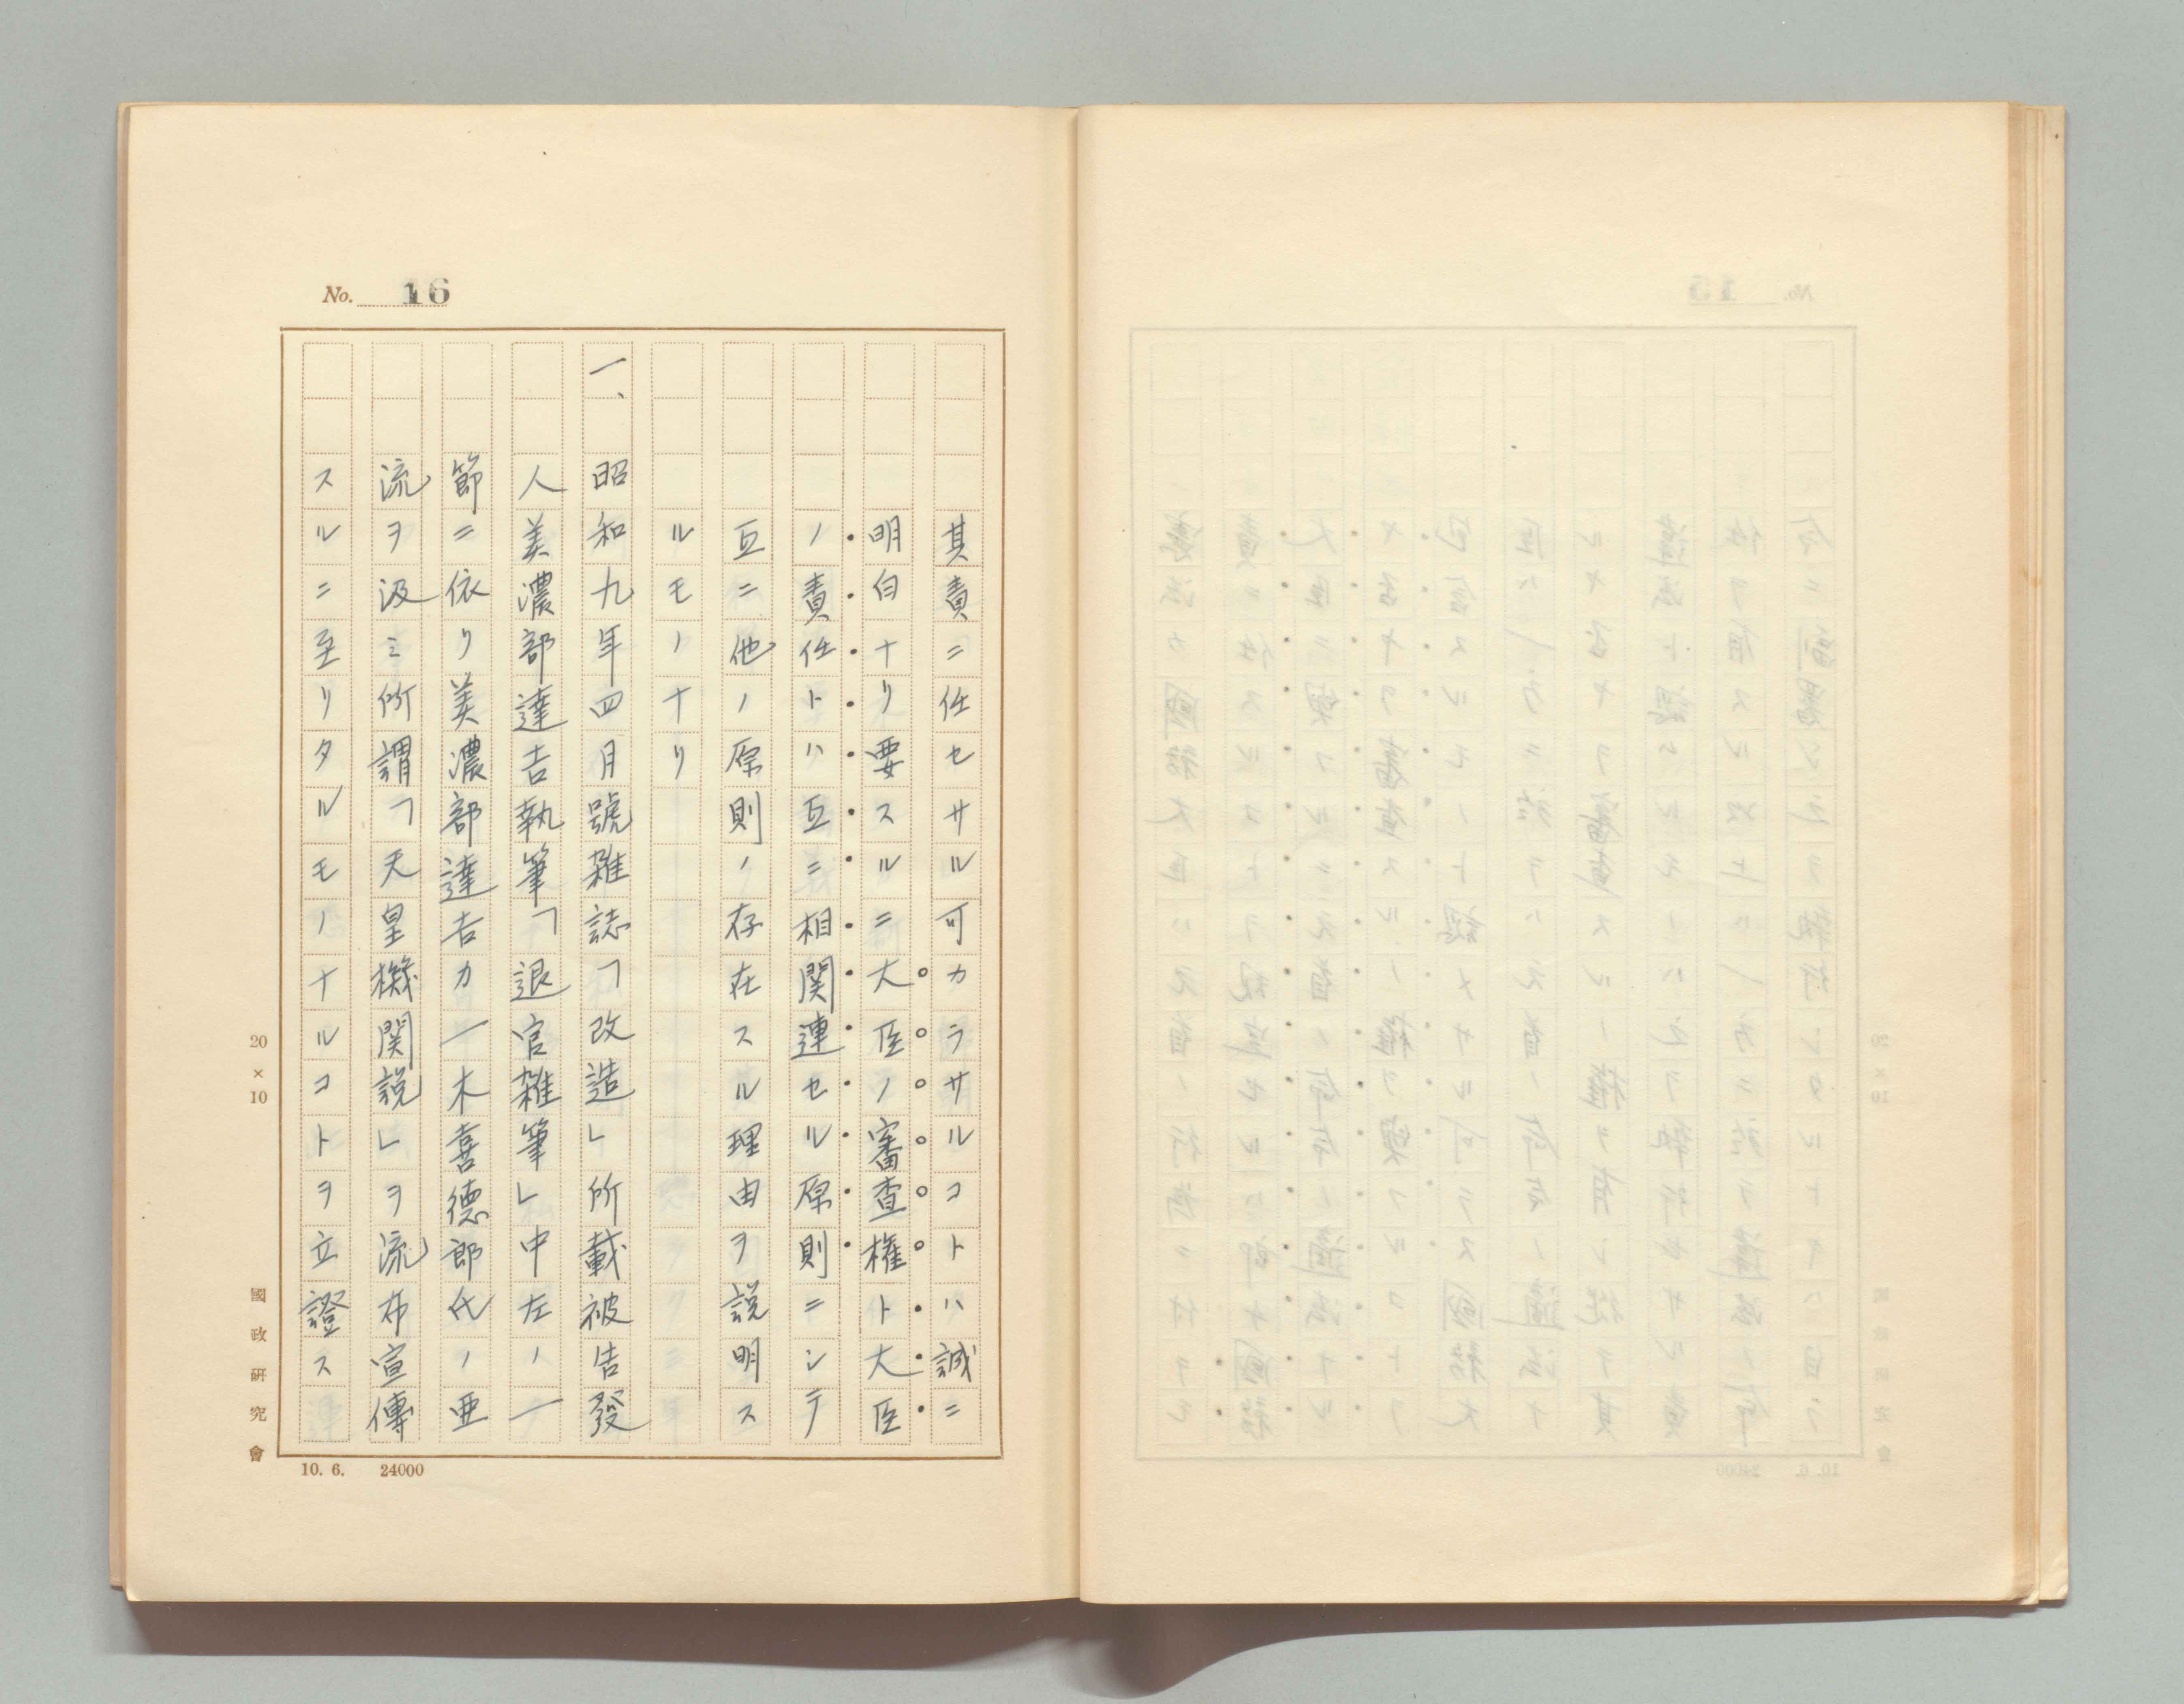 No. 16
其責ニ任セサル可カラサルコトハ誠ニ
明白ナリ要スルニ大臣ノ審査権ト大臣
ノ責任トハ互ニ相関連セル原則ニシテ
互ニ他ノ原則ノ存在スル理由ヲ説明ス
ルモノナリ
一、昭和九年四月號雑誌「改造」所載被告發
人美濃部達吉執筆「退官雑筆」中左ノ一
節ニ依リ美濃部達吉カ一木喜德郎氏ノ亜
流ヲ汲ミ所謂「天皇機関説」ヲ流布宣傳
スルニ至リタルモノナルコトヲ立證ス
20×10
國政研究會
10. 6. 24000